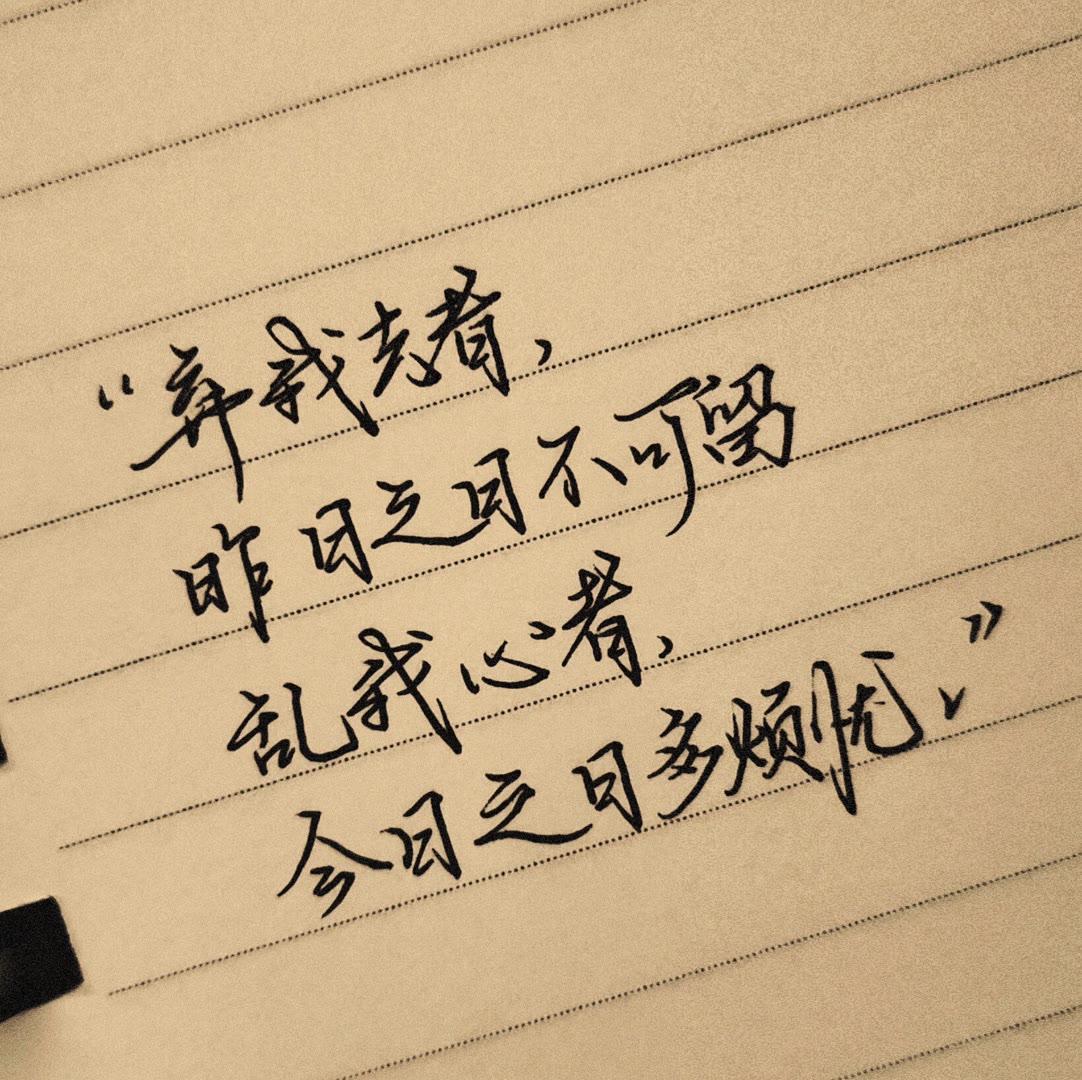 “弃我去者，
昨日之日不可留
乱我心者，
今日之日多烦忧。”